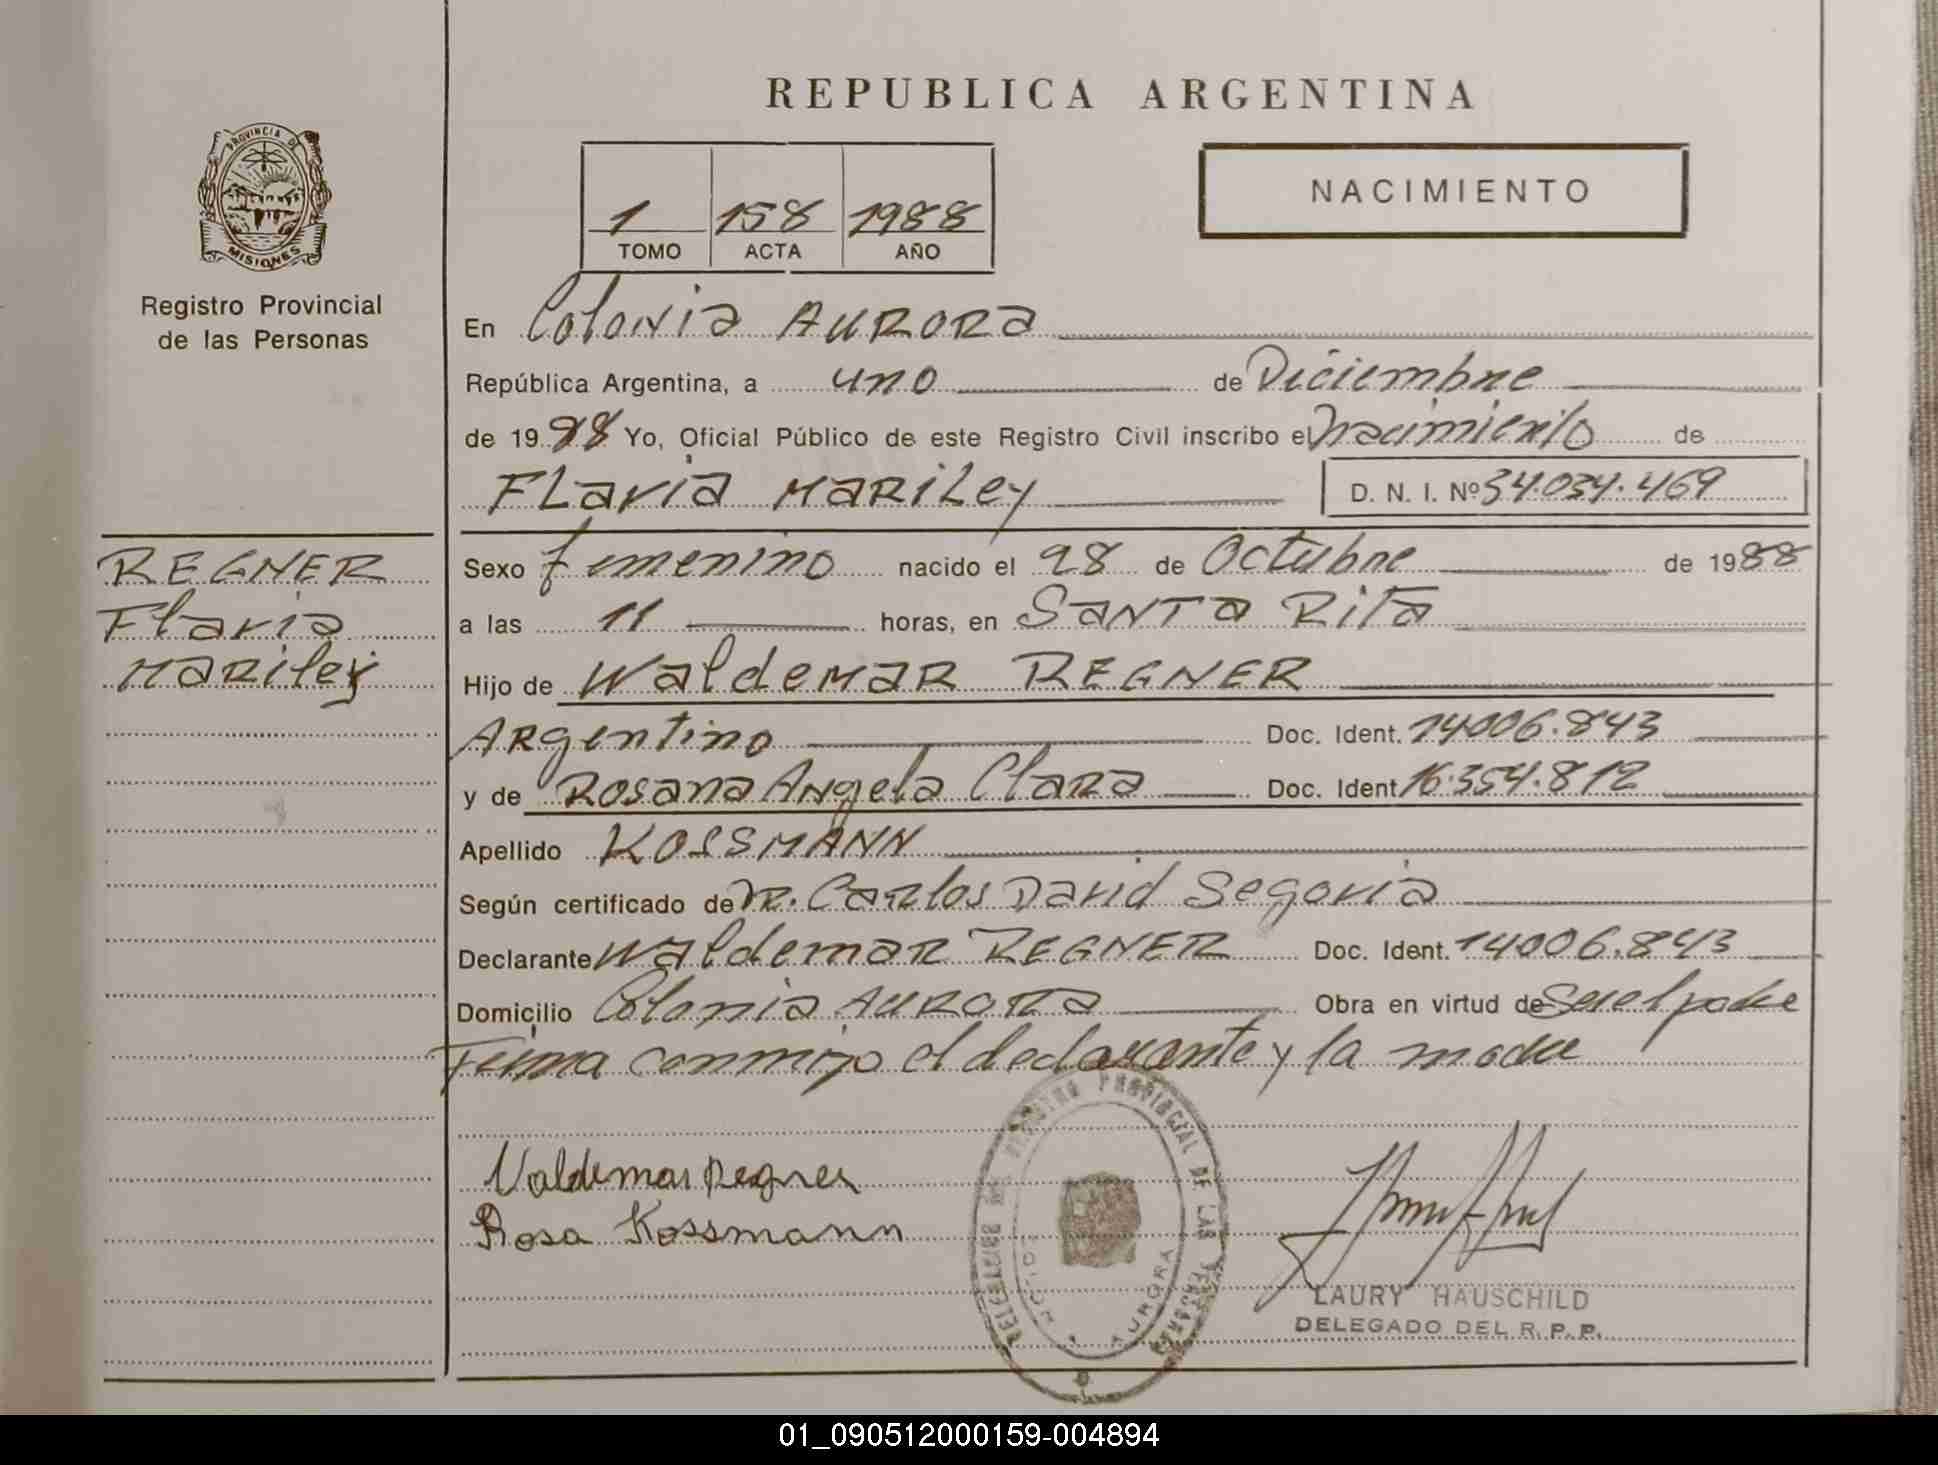 REPUBLICA ARGENTINA
PROVINCIA DE
MISIONES
Registro Provincial
de las Personas
1 158 1988
TOMO ACTA AÑO
NACIMIENTO
En Colonia AURORA
República Argentina, a uno de Diciembre
de 1988 Yo, Oficial Público de este Registro Civil inscribo el Nacimiento de
FLavia MARiLey D. N. I. Nº 34.034.469
REGNER
Flavia
Mariley
Sexo femenino nacido el 28 de Octubre de 1988
a las 11 horas, en SANTA RITA
Hijo de WaldeMAR REGNER
Argentino Doc. Ident. 14006.843
y de Rosana Angela Clara Doc. Ident. 16.354.812
Apellido KOSSMANN
Según certificado de Dr. Carlos David Segovia
Declarante Waldemar REGNER Doc. Ident. 14006.843
Domicilio Colonia AURORA Obra en virtud de Ser el padre
Firma conmigo el declarante y la madre
Valdemar Regner
Rosa Kossmann
REGISTRO PROVINCIAL DE LAS PERSONAS
AURORA
LAURY HAUSCHILD
DELEGADO DEL R. P. P.
01_090512000159-004894